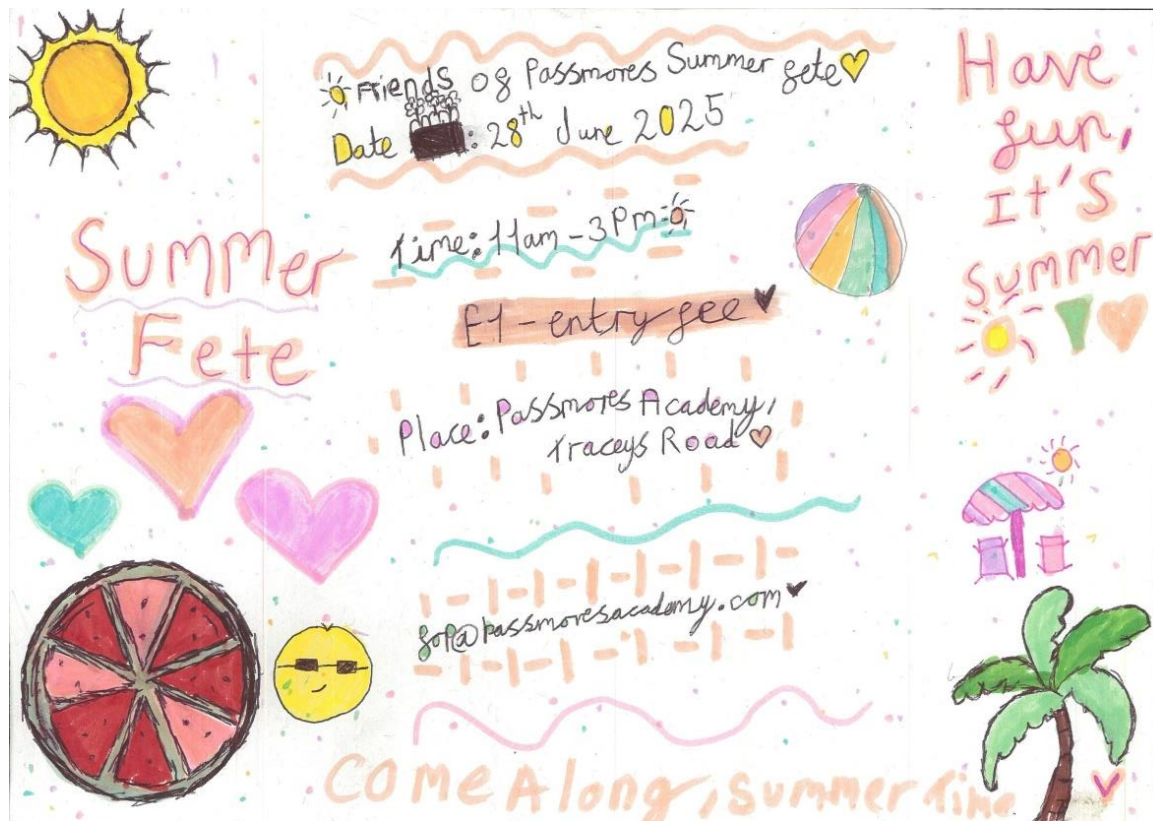 Friends of Passmores Summer fete
Date : 28th June 2025
Time: 11am - 3Pm
£1 - entry fee
Place: Passmores Academy,
Traceys Road
fop@passmoresacademy.com
Summer
Fete
Have
fun,
It's
Summer
Come Along, Summer Time